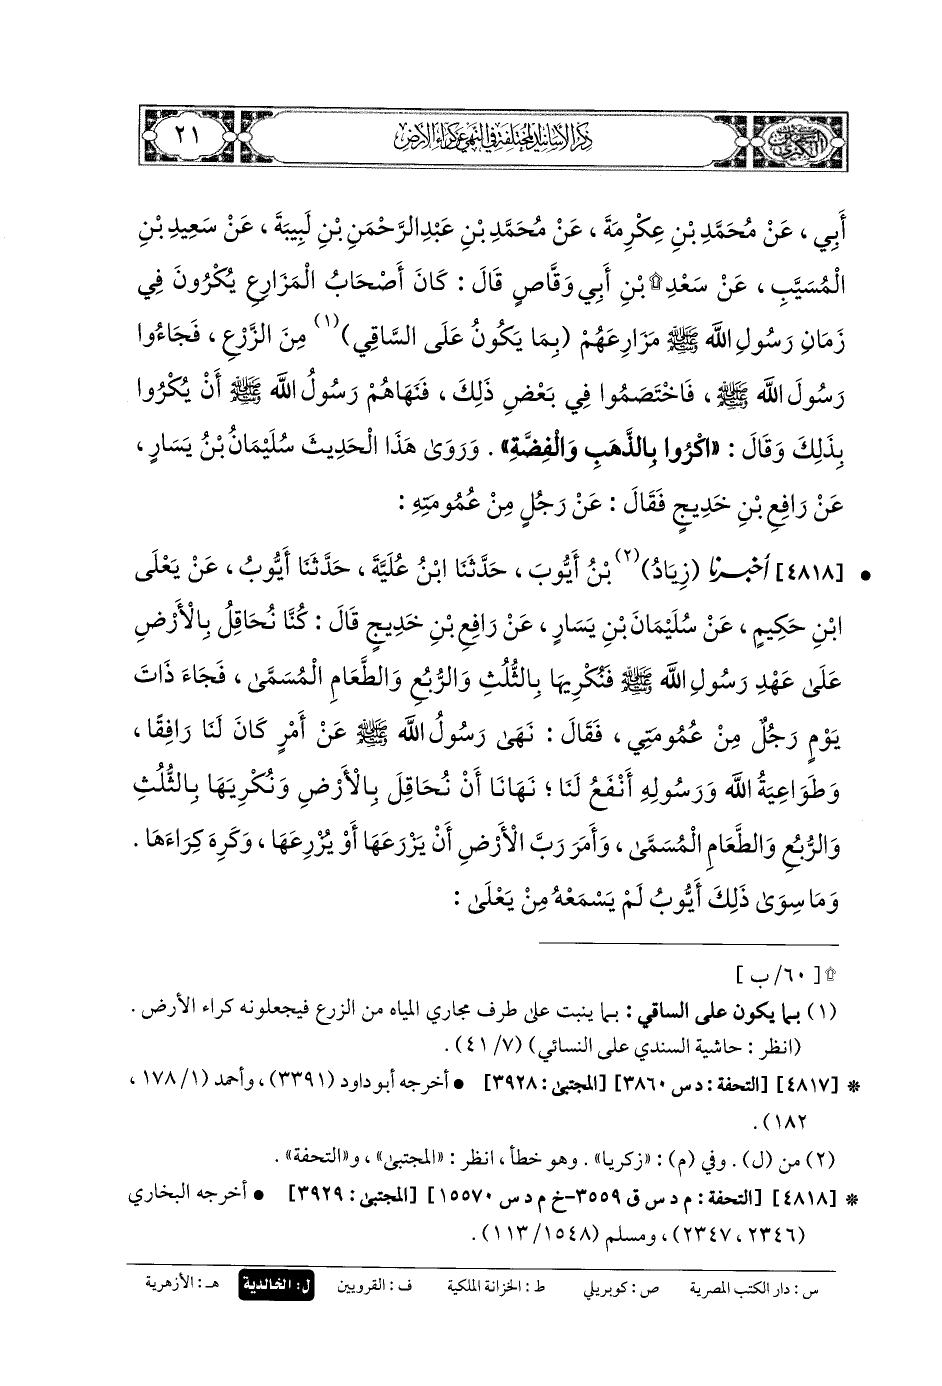 السنن الكبرى ذكر الأسانيد المختلفة في النهي عن كراء الأرض ٢١
أَبِي ، عَنْ مُحَمَّدِ بْنِ عِكْرِمَةَ ، عَنْ مُحَمَّدِ بْنِ عَبْدِالرَّحْمَنِ بْنِ لَبِيبَةَ ، عَنْ سَعِيدِ بْنِ
الْمُسَيَّبِ ، عَنْ سَعْدِ۩ بْنِ أَبِي وَقَّاصٍ قَالَ : كَانَ أَصْحَابُ الْمَزَارِعِ يُكْرُونَ فِي
زَمَانِ رَسُولِ اللَّه ﷺ مَزَارِعَهُمْ (بِمَا يَكُونُ عَلَى السَّاقِي)(١) مِنَ الزَّرْعِ ، فَجَاءُوا
رَسُولَ اللَّه ﷺ ، فَاخْتَصَمُوا فِي بَعْضِ ذَلِكَ ، فَنَهَاهُمْ رَسُولُ اللَّه ﷺ أَنْ يُكْرُوا
بِذَلِكَ وَقَالَ : «اكْرُوا بِالذَّهَبِ وَالْفِضَّةِ» . وَرَوَىٰ هَذَا الْحَدِيثَ سُلَيْمَانُ بْنُ يَسَارٍ ،
عَنْ رَافِعِ بْنِ خَدِيجٍ فَقَالَ : عَنْ رَجُلٍ مِنْ عُمُومَتِهِ :
• [٤٨١٨] أخبرنا (زِيَادُ)(٢) بْنُ أَيُّوبَ ، حَدَّثَنَا ابْنُ عُلَيَّةَ ، حَدَّثَنَا أَيُّوبُ ، عَنْ يَعْلَى
ابْنِ حَكِيمٍ ، عَنْ سُلَيْمَانَ بْنِ يَسَارٍ ، عَنْ رَافِعِ بْنِ خَدِيجٍ قَالَ : كُنَّا نُحَاقِلُ بِالْأَرْضِ
عَلَىٰ عَهْدِ رَسُولِ اللَّه ﷺ فَنُكْرِيهَا بِالثُّلُثِ وَالرُّبُعِ وَالطَّعَامِ الْمُسَمَّىٰ ، فَجَاءَ ذَاتَ
يَوْمٍ رَجُلٌ مِنْ عُمُومَتِي ، فَقَالَ : نَهَىٰ رَسُولُ اللَّه ﷺ عَنْ أَمْرٍ كَانَ لَنَا رَافِقًا ،
وَطَوَاعِيَةُ اللَّه وَرَسُولِهِ أَنْفَعُ لَنَا ؛ نَهَانَا أَنْ نُحَاقِلَ بِالْأَرْضِ وَنُكْرِيَهَا بِالثُّلُثِ
وَالرُّبُعِ وَالطَّعَامِ الْمُسَمَّىٰ ، وَأَمَرَ رَبَّ الْأَرْضِ أَنْ يَزْرَعَهَا أَوْ يُزْرِعَهَا ، وَكَرِهَ كِرَاءَهَا .
وَمَا سِوَىٰ ذَلِكَ أَيُّوبُ لَمْ يَسْمَعْهُ مِنْ يَعْلَىٰ :
۩ [ ٦٠/ ب ]
(١) بما يكون على الساقي : بما ينبت على طرف مجاري المياه من الزرع فيجعلونه كراء الأرض .
(انظر : حاشية السندي على النسائي) (٧/ ٤١) .
* [٤٨١٧] [التحفة : د س ٣٨٦٠] [المجتبى : ٣٩٢٨] • أخرجه أبو داود (٣٣٩١) ، وأحمد (١/ ١٧٨ ،
١٨٢) .
(٢) من (ل) . وفي (م) : «زكريا» . وهو خطأ ، انظر : «المجتبى» ، و«التحفة» .
* [٤٨١٨] [التحفة : م د س ق ٣٥٥٩-خ م د س ١٥٥٧٠] [المجتبى : ٣٩٢٩] • أخرجه البخاري
(٢٣٤٦ ، ٢٣٤٧) ، ومسلم (١٥٤٨/ ١١٣) .
س : دار الكتب المصرية ص : كوبريلي ط : الخزانة الملكية ف : القرويين ل : الخالدية هـ : الأزهرية